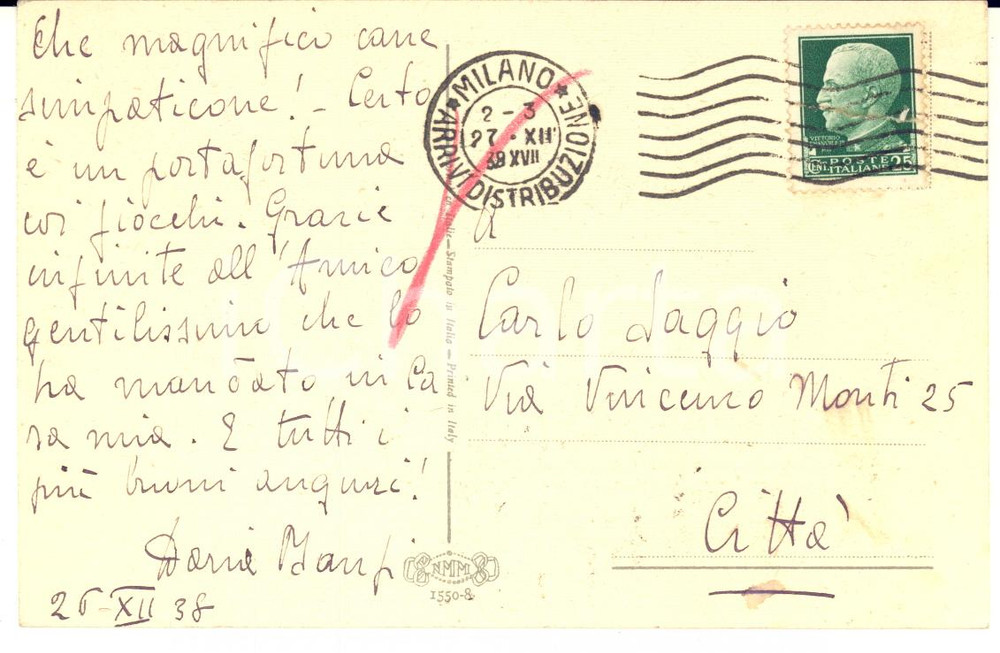 Che magnifico cane
simpaticone! - Certo
è un portafortuna
coi fiocchi. Grazie
infinite all'Amico
gentilissimo che lo
ha mandato in ca
sa mia. E tutti i
più buoni auguri!
Daria Banfi
26-XII 38
MILANO
ARRIVI DISTRIBUZIONE
2-3
27·XII
38 XVII
VITTORIO
CENT. POSTE 25
ITALIANE
Stampato in Italia - Printed in Italy
A
Carlo Saggio
Via Vincenzo Monti 25
Città
NMM
1550-8